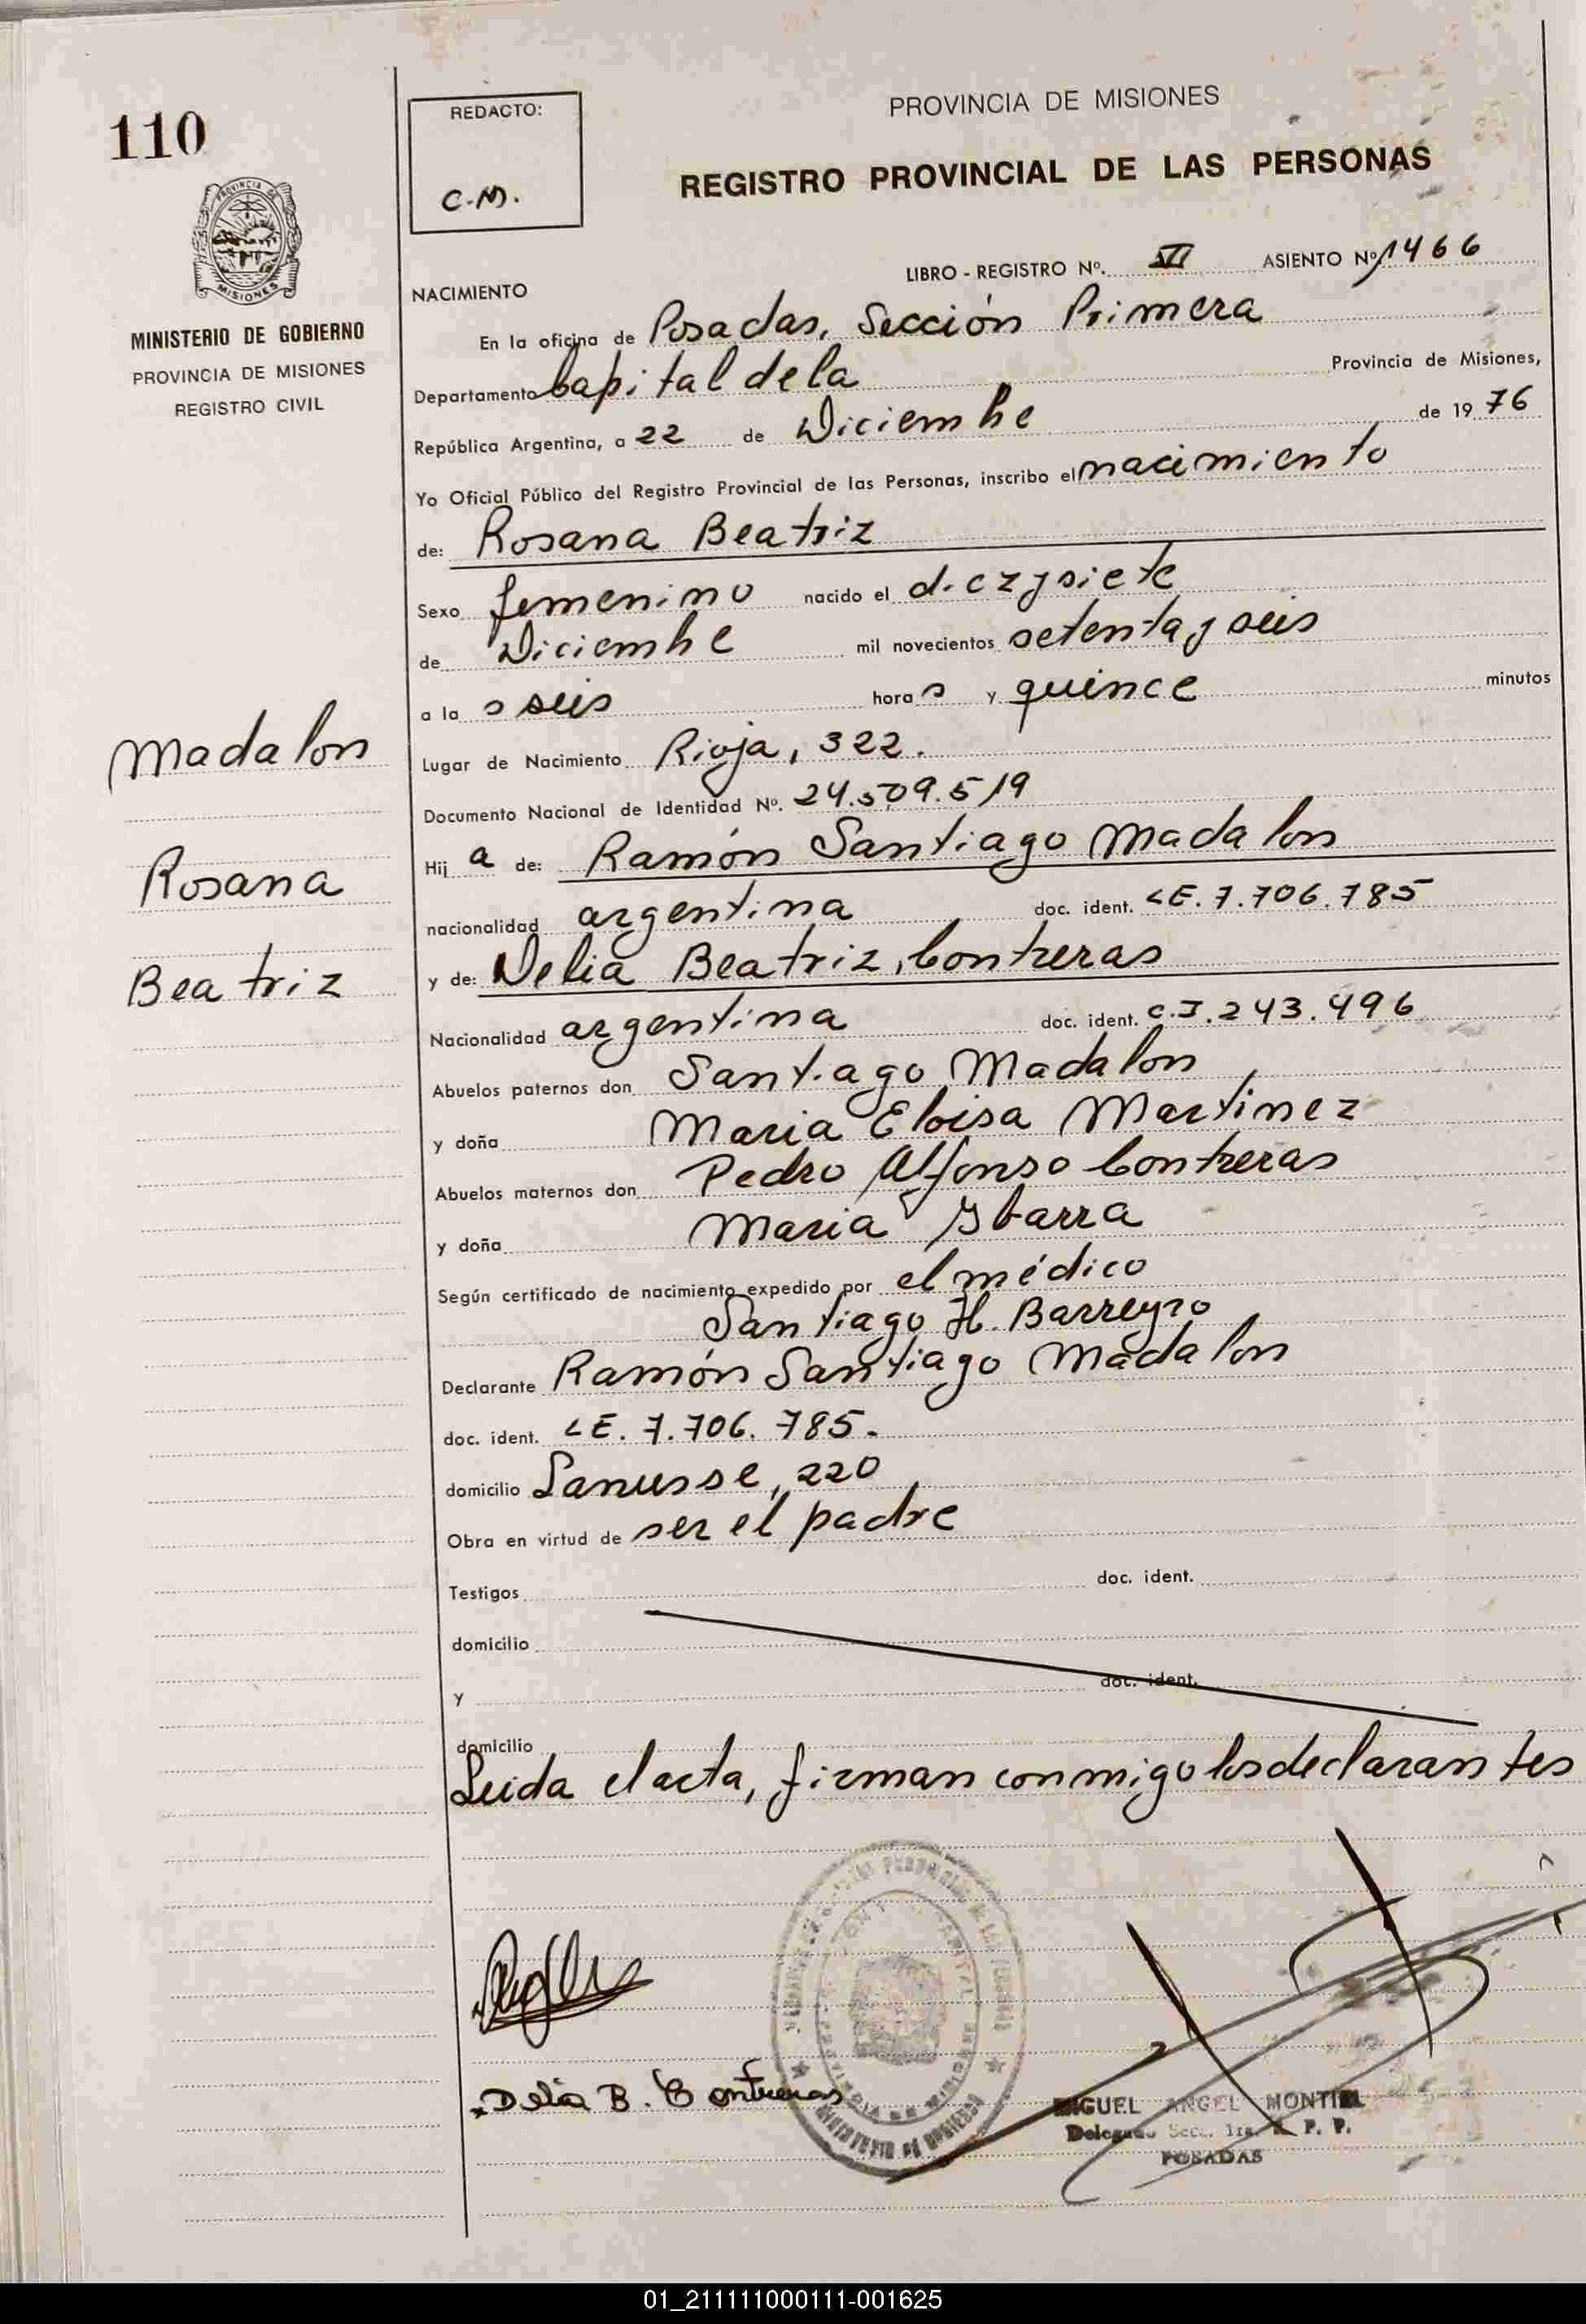 110
PROVINCIA DE
MISIONES
MINISTERIO DE GOBIERNO
PROVINCIA DE MISIONES
REGISTRO CIVIL
REDACTO:
C.M.
PROVINCIA DE MISIONES
REGISTRO PROVINCIAL DE LAS PERSONAS
LIBRO - REGISTRO Nº. VI ASIENTO Nº 1466
NACIMIENTO
En la oficina de Posadas, Sección Primera
Departamento Capital de la Provincia de Misiones,
República Argentina, a 22 de Diciembre de 1976
Yo Oficial Público del Registro Provincial de las Personas, inscribo el nacimiento
de: Rosana Beatriz
Sexo femenino nacido el diezysiete
de Diciembre mil novecientos setenta y seis
a las seis horas y quince minutos
Lugar de Nacimiento Rioja, 322.
Documento Nacional de Identidad Nº. 24.509.519
Hija de: Ramón Santiago Madalon
nacionalidad argentina doc. ident. LE. 7.706.785
y de: Delia Beatriz, Contreras
Nacionalidad argentina doc. ident. C.I. 243.496
Abuelos paternos don Santiago Madalon
y doña Maria Eloisa Martinez
Abuelos maternos don Pedro Alfonso Contreras
y doña Maria Ybarra
Según certificado de nacimiento expedido por el médico
Santiago H. Barreyro
Declarante Ramón Santiago Madalon
doc. ident. LE. 7.706.785.
domicilio Lanusse, 220
Obra en virtud de ser el padre
Testigos doc. ident.
domicilio
y doc. ident.
domicilio
Leida el acta, firman conmigo los declarantes
Madalon
Rosana
Beatriz
Delia B. Contreras
MINISTERIO DE GOBIERNO
MIGUEL ANGEL MONTIEL
Delegado Secc. 1ra. R. P. P.
POSADAS
01_211111000111-001625